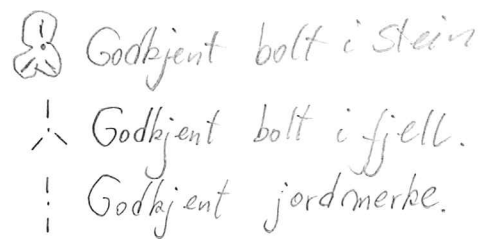 Godkjent bolt i stein
Godkjent bolt i fjell.
Godkjent jordmerke.